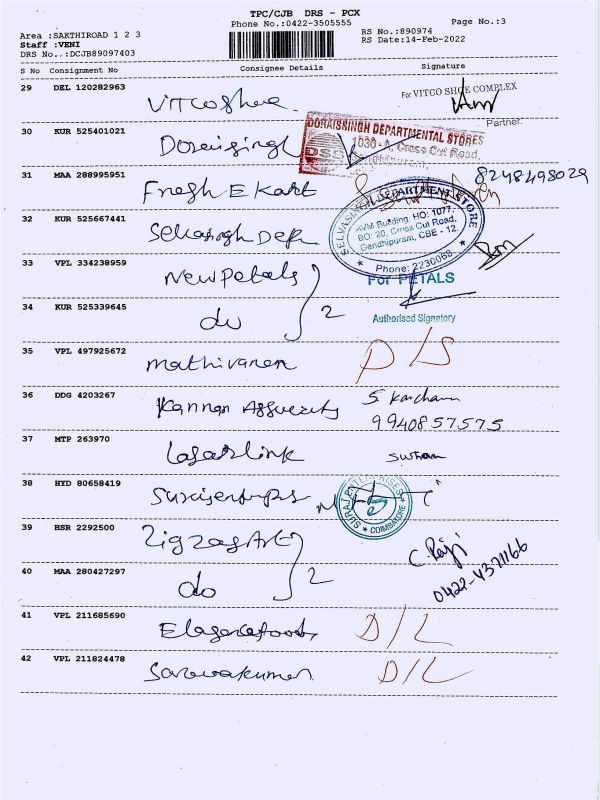 TPC/CJB DRS - PCX
Phone No.:0422-3505555
Page No.:3
Area :SAKTHIROAD 1 2 3
Staff :VENI
DRS No..:DCJB89097403
RS No.:890974
RS Date:14-Feb-2022
S No Consignment No Consignee Details Signature
29 DEL 120282963 Vitcoshoe
For VITCO SHOE COMPLEX
Partner.
30 KUR 525401021 Doraisingh
DORAISSINGH DEPARTMENTAL STORES
1030-A, Cross Cut Road,
DSS
31 MAA 288995951 Fresh E Kart 8248498029
32 KUR 525667441
SELVASINGH DEPARTMENT STORE
AVM Building, HO: 1077,
BO: 20, Cross Cut Road,
Gandhipuram, CBE - 12.
Phone: 2230068
33 VPL 334238959 New petals
For PETALS
34 KUR 525339645 do 2
Authorised Signatory
35 VPL 497925672 Mathivanan D/S
36 DDG 4203267 Kannan
9940857575
37 MTP 263970
38 HYD 80658419
SURAJ ENTERPRISES
COIMBATORE
39 HSR 2292500 Zigzag Art
C. Raji
40 MAA 280427297 do 2
0422-4371166
41 VPL 211685690 D/L
42 VPL 211824478 Saravakumar D/L